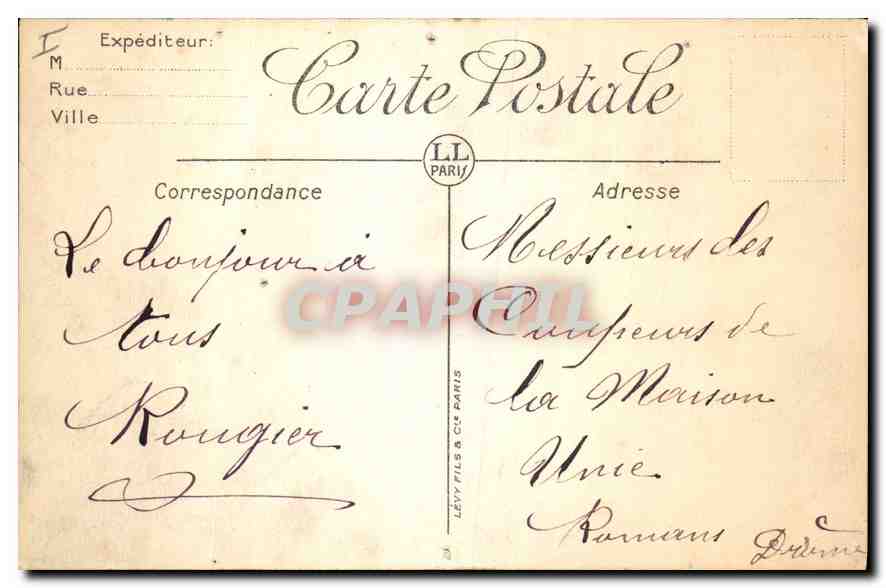 I
Expéditeur:
M
Rue
Ville
Carte Postale
LL
PARIS
Correspondance
Le bonjour à
tous
Rougier
Adresse
Messieurs des
Coupeurs de
la Maison
Unie
Romans
Drôme
LÉVY FILS & Cie PARIS
CPAPHIL